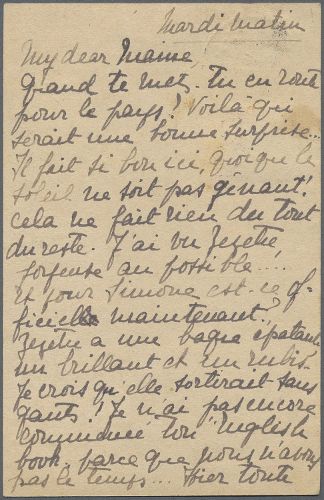 Mardi matin
My dear Mamie,
Quand te mets-tu en route
pour le pays? Voilà qui
serait une bonne surprise...
Il fait si bon ici, quoique le
soleil ne soit pas gênant!
cela ne fait rien du tout
du reste. J'ai vu Zezette,
joyeuse au possible...
et pour Simone est-ce of-
ficielle maintenant?
Zezette a une bague épatante
un brillant et un rubis.
Je crois qu'elle sortirait sans
gants! Je n'ai pas encore
commencé ton English
book, parce que nous n'avons
pas le temps... Hier toute